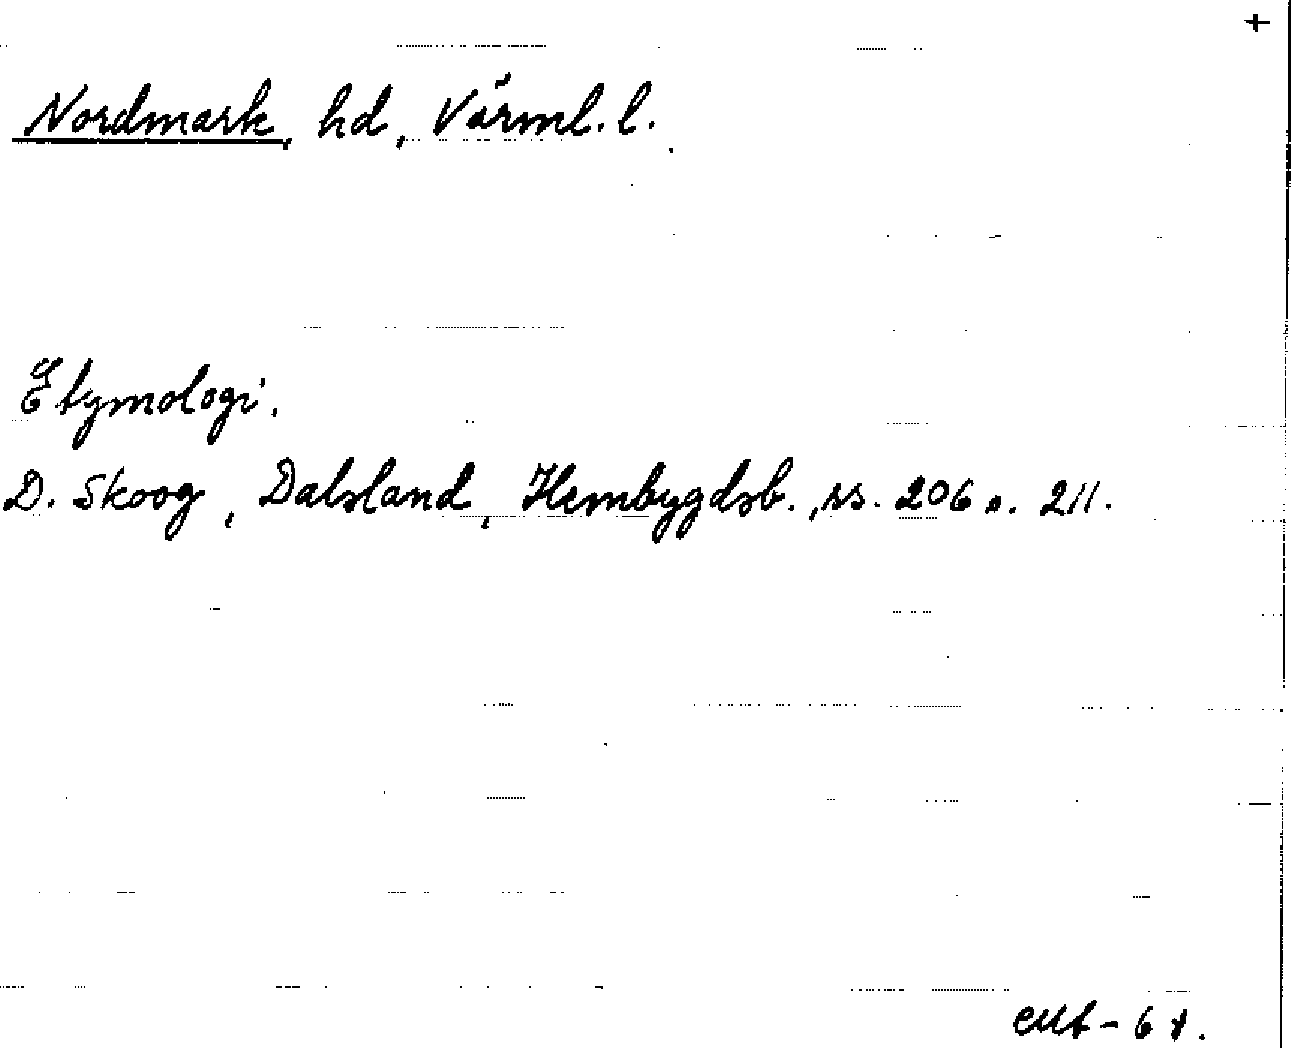 +
Nordmark, hd, Värml. l.
Etymologi.
D. Skoog, Dalsland, Hembygdsb., ss. 206 o. 211.